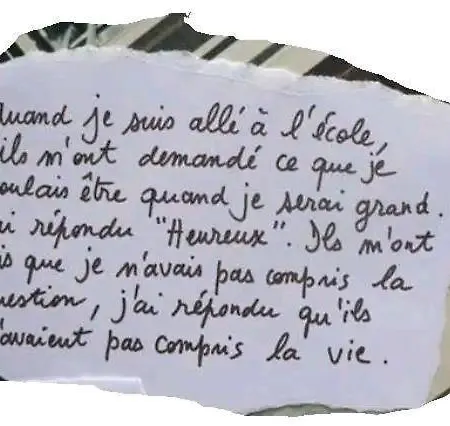 Quand je suis allé à l'école,
ils m'ont demandé ce que je
oulais être quand je serai grand.
i répondu "Heureux". Ils m'ont
is que je n'avais pas compris la
uestion, j'ai répondu qu'ils
'avaient pas compris la vie.